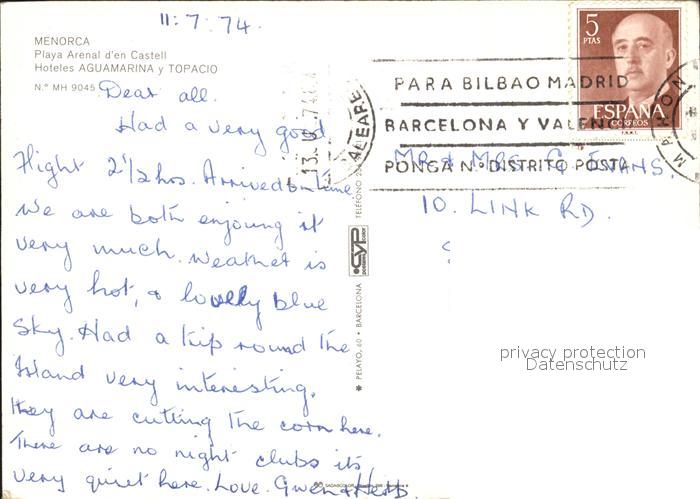 11.7.74.
MENORCA
Playa Arenal d'en Castell
Hoteles AGUAMARINA y TOPACIO
N.º MH 9045
Dear all.
Had a very good
flight 2½ hrs. Arrived on time.
We are both enjoying it
very much. Weather is
very hot, & lovely blue
sky. Had a trip round the
Island very interesting.
They are cutting the corn here.
There are no night clubs its
very quiet here. Love. Gwen & Herb.
CYP
PELAYO, 60 • BARCELONA
TELÉFONO
5
PTAS
ESPAÑA
CORREOS
F.N.M.T.
MAHON
PARA BILBAO MADRID
BARCELONA Y VALENCIA
PONGA N.º DISTRITO POSTAL
MR & MRS G. EVANS.
10. LINK RD.
privacy protection
Datenschutz